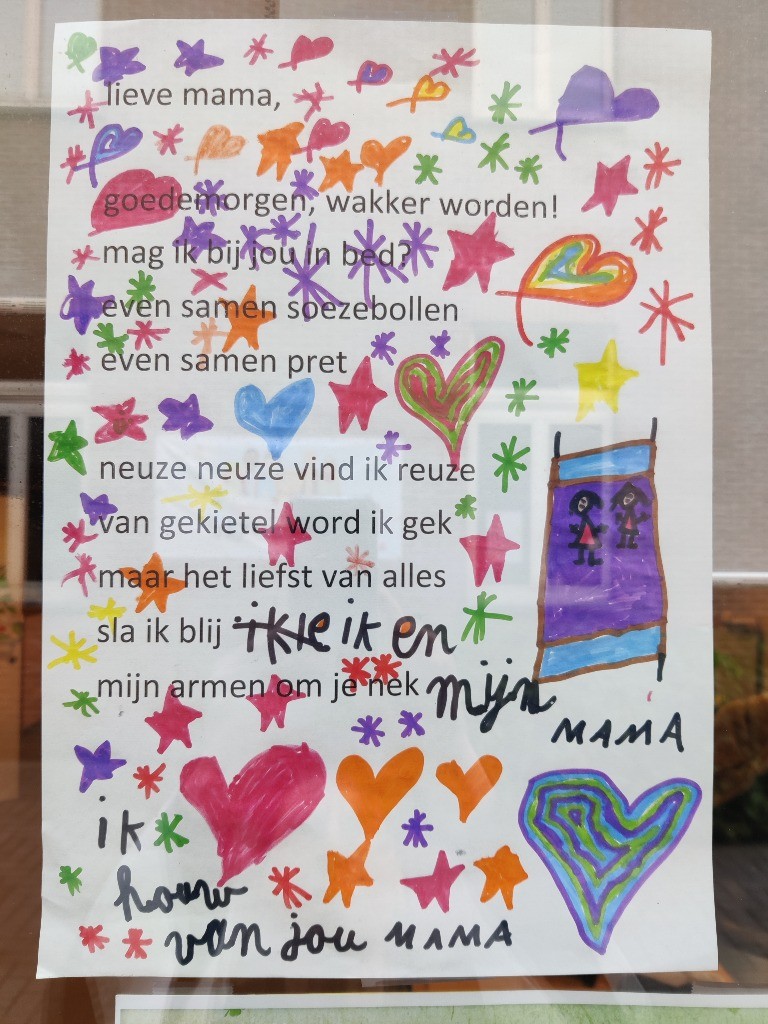 lieve mama,
goedemorgen, wakker worden!
mag ik bij jou in bed?
even samen soezebollen
even samen pret
neuze neuze vind ik reuze
van gekietel word ik gek
maar het liefst van alles
sla ik blij ik en
mijn armen om je nek mijn
MAMA
ik
houw
van jou MAMA